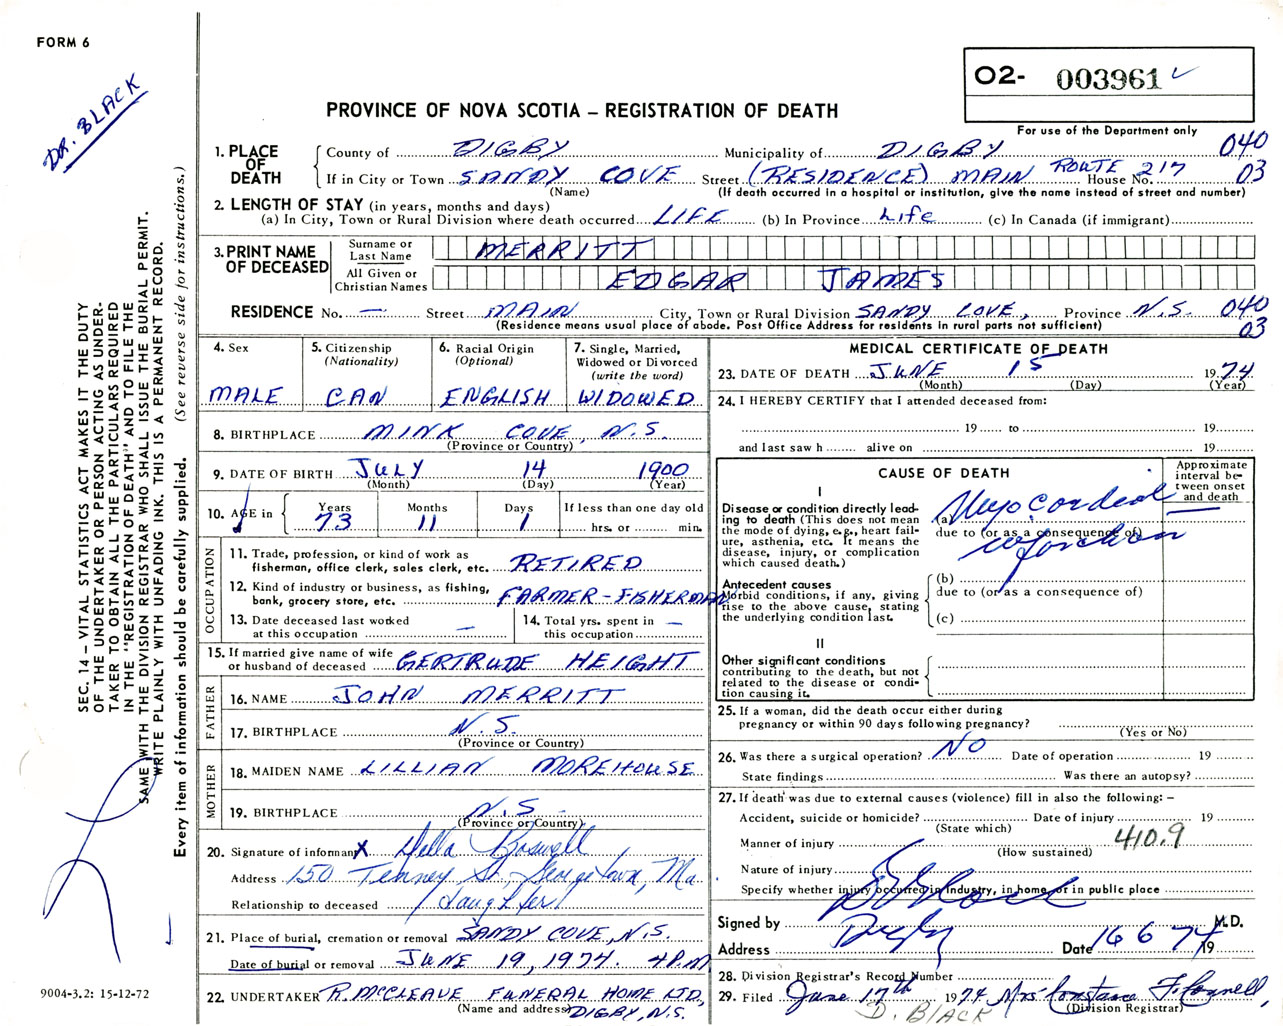 FORM 6
DR. BLACK
O2- 003961
PROVINCE OF NOVA SCOTIA – REGISTRATION OF DEATH
For use of the Department only
1. PLACE OF DEATH
County of DIGBY Municipality of DIGBY 040
If in City or Town SANDY COVE Street (RESIDENCE) MAIN ROUTE 217 House No. 03
(Name) (If death occurred in a hospital or institution, give the name instead of street and number)
2. LENGTH OF STAY (in years, months and days)
(a) In City, Town or Rural Division where death occurred LIFE (b) In Province Life (c) In Canada (if immigrant)
3. PRINT NAME OF DECEASED
Surname or Last Name MERRITT
All Given or Christian Names EDGAR JAMES
RESIDENCE No. — Street MAIN City, Town or Rural Division SANDY COVE, Province N.S. 040
(Residence means usual place of abode. Post Office Address for residents in rural parts not sufficient) 03
4. Sex MALE
5. Citizenship (Nationality) CAN
6. Racial Origin (Optional) ENGLISH
7. Single, Married, Widowed or Divorced (write the word) WIDOWED
8. BIRTHPLACE MINK COVE, N.S.
(Province or Country)
9. DATE OF BIRTH JULY 14 1900
(Month) (Day) (Year)
10. AGE in Years 73 Months 11 Days 1 If less than one day old hrs. or min.
OCCUPATION
11. Trade, profession, or kind of work as fisherman, office clerk, sales clerk, etc. RETIRED
12. Kind of industry or business, as fishing, bank, grocery store, etc. FARMER-FISHERMAN
13. Date deceased last worked at this occupation —
14. Total yrs. spent in this occupation —
15. If married give name of wife or husband of deceased GERTRUDE HEIGHT
FATHER
16. NAME JOHN MERRITT
17. BIRTHPLACE N.S.
(Province or Country)
MOTHER
18. MAIDEN NAME LILLIAN MOREHOUSE
19. BIRTHPLACE N.S.
(Province or Country)
20. Signature of informant X Della Boswell
Address 150 Tenney St., Georgetown, Ma.
Relationship to deceased daughter
21. Place of burial, cremation or removal SANDY COVE, N.S.
Date of burial or removal JUNE 19, 1974. 4 P.M
22. UNDERTAKER R. McCLEAVE FUNERAL HOME LTD,
(Name and address) DIGBY, N.S.
MEDICAL CERTIFICATE OF DEATH
23. DATE OF DEATH JUNE 15 1974
(Month) (Day) (Year)
24. I HEREBY CERTIFY that I attended deceased from:
19 to 19
and last saw h alive on 19
CAUSE OF DEATH
Approximate interval between onset and death
I
Disease or condition directly leading to death (This does not mean the mode of dying, e.g., heart failure, asthenia, etc. It means the disease, injury, or complication which caused death.)
(a) Myocardial
due to (or as a consequence of)
infarction
Antecedent causes
Morbid conditions, if any, giving rise to the above cause, stating the underlying condition last.
(b)
due to (or as a consequence of)
(c)
II
Other significant conditions contributing to the death, but not related to the disease or condition causing it.
25. If a woman, did the death occur either during pregnancy or within 90 days following pregnancy?
(Yes or No)
26. Was there a surgical operation? NO Date of operation 19
State findings Was there an autopsy?
27. If death was due to external causes (violence) fill in also the following: –
Accident, suicide or homicide? Date of injury 19
(State which)
Manner of injury 410.9
(How sustained)
Nature of injury
Specify whether injury occurred in industry, in home, or in public place
Signed by M.D.
Address Digby Date 16 6 74 19
28. Division Registrar's Record Number
29. Filed June 17th 1974 Mrs Constance F. Connell,
(Division Registrar)
D. BLACK
SEC. 14 – VITAL STATISTICS ACT MAKES IT THE DUTY
OF THE UNDERTAKER OR PERSON ACTING AS UNDER-
TAKER TO OBTAIN ALL THE PARTICULARS REQUIRED
IN THE "REGISTRATION OF DEATH" AND TO FILE THE
SAME WITH THE DIVISION REGISTRAR WHO SHALL ISSUE THE BURIAL PERMIT.
WRITE PLAINLY WITH UNFADING INK. THIS IS A PERMANENT RECORD.
Every item of information should be carefully supplied. (See reverse side for instructions.)
9004-3.2: 15-12-72